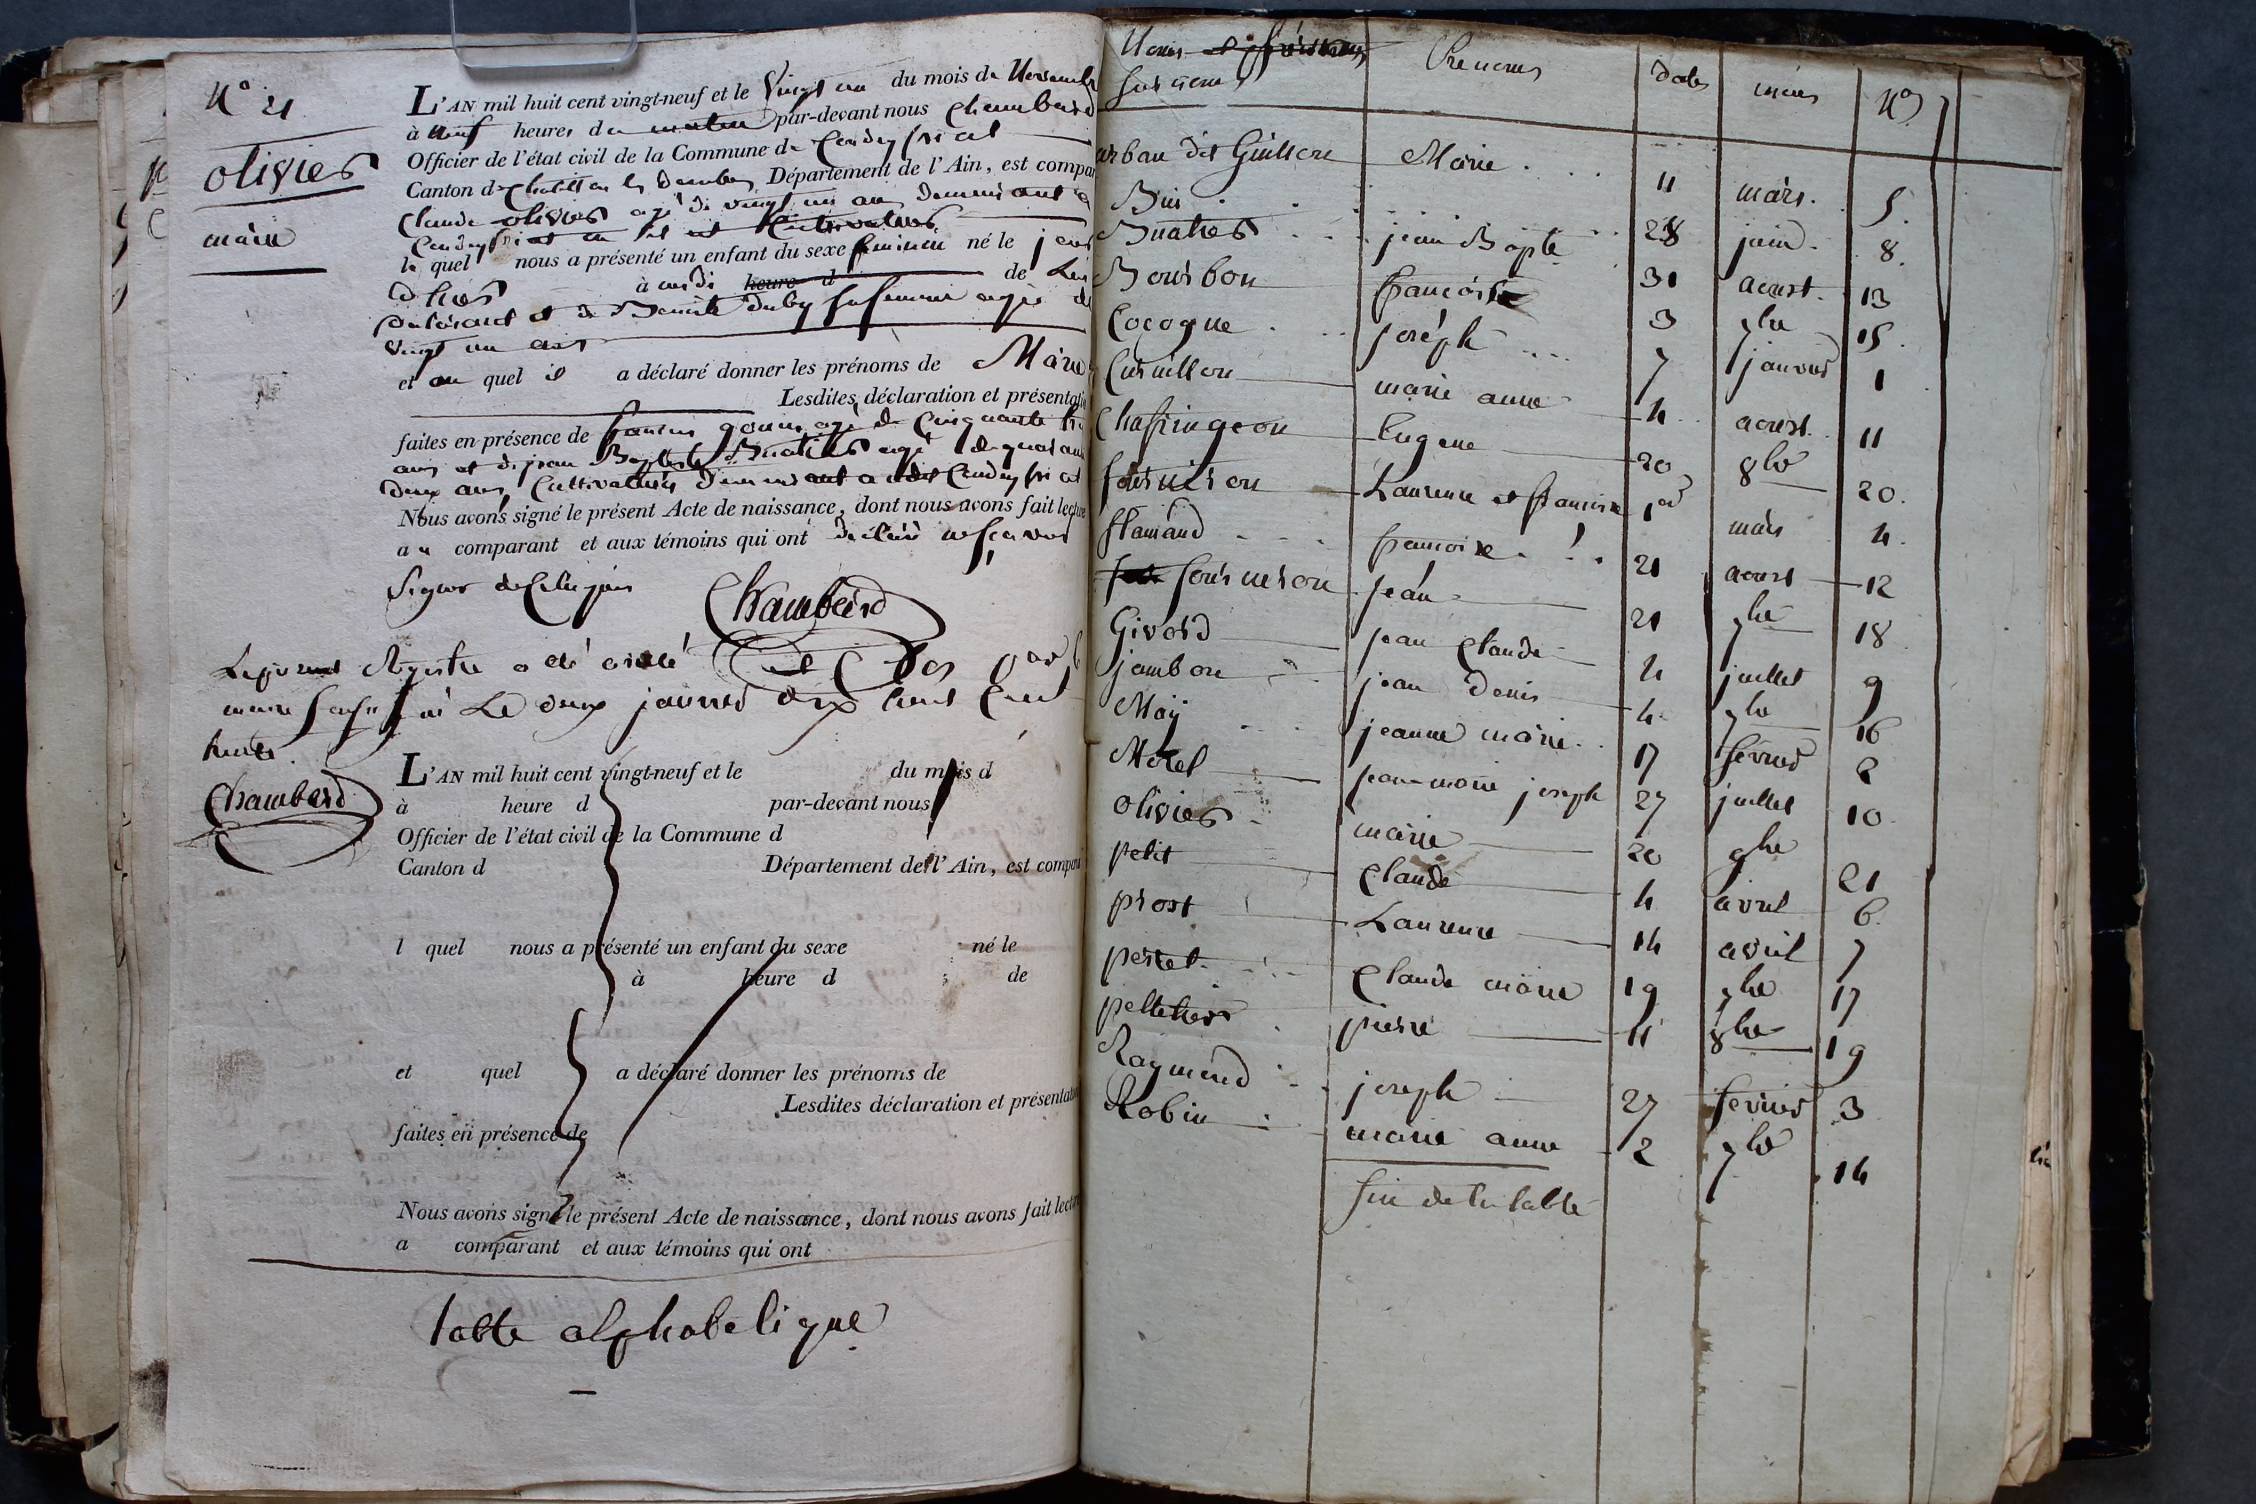 N° 21
olivier
marie
L'AN mil huit cent vingt-neuf et le Vingt un du mois de Novembre
à neuf heures du matin par-devant nous Chambard
Officier de l'état civil de la Commune de
Canton de Chatillon les Dombes Département de l'Ain, est compar
Claude olivier agé de vingt un ans demeurant a
cultivateur
le quel nous a présenté un enfant du sexe feminin né le jour
d'hier à midi heure d de Lui
Declarant et de Benoite Duby sa femme agée de
vingt un ans
et au quel il a déclaré donner les prénoms de Marie
Lesdites déclaration et présentatio
faites en présence de agé de Cinquante
ans et de jean Baptiste Buatier agé de quarante
deux ans, Cultivateurs demeurant a
Nous avons signé le présent Acte de naissance, dont nous avons fait lecture
au comparant et aux témoins qui ont déclaré ne savoir
Signer de Ce
Chambard
Le présent Registre a été et Clos par
maire Le deux janvier dix huit Cent
trente.
Chambard
L'AN mil huit cent vingt-neuf et le du mois d
à heure d par-devant nous
Officier de l'état civil de la Commune d
Canton d Département de l'Ain, est compar
l quel nous a présenté un enfant du sexe né le
à heure d de
et quel a déclaré donner les prénoms de
Lesdites déclaration et présentatio
faites en présence de
Nous avons signé le présent Acte de naissance, dont nous avons fait lectur
a comparant et aux témoins qui ont
table alphabetique
Noms Prenoms dates mois Nos
surnoms
dit Guillon Marie 11 mars 5
Buatier jean Bapte 28 juin 8
Bourbon françoise 31 aoust 13
Cocogne joseph 3 7bre 15
Curvillon marie anne 7 janvier 1
Chassingeon Eugene 4 aoust 11
fourneron Laurence et françoise 20 8bre 20
flamand françoise 1er mars 4
fourneron jean 21 aoust 12
Givord jean Claude 21 7bre 18
jambon jean Denis 4 juillet 9
May jeanne marie 4 7bre 16
Morel jean-marie joseph 17 fevrier 2
olivier marie 27 juillet 10
petit Claude 20 9bre 21
prost Laurence 4 avril 6
perret Claude marie 14 avril 7
pelletier pierre 19 7bre 17
Raymond joseph 11 8bre 19
Robin marie anne 27 fevrier 3
2 7bre 14
fin de la table